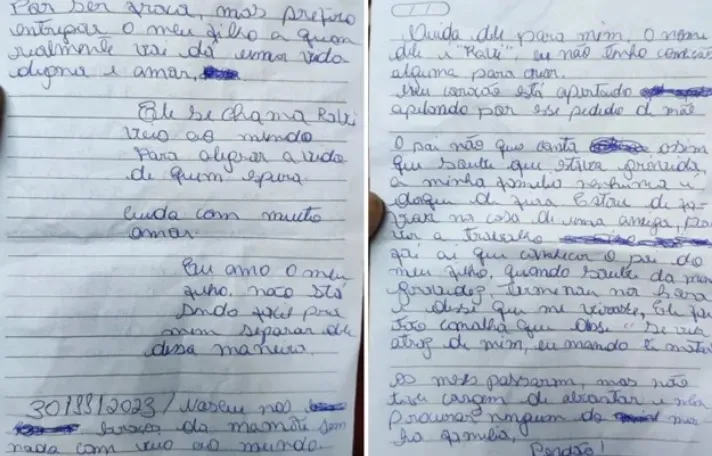 Por ser fraca, mas prefiro
entregar o meu filho a quem
realmente vai dá uma vida
digna e amor,
Ele se chama Ravi
veio ao mundo
Para alegrar a vida
de quem espera
cuida com muito
amor.
Eu amo o meu
filho. naco stá
sendo facil pra
mim separar de
dessa maneira.
30/11/2023 / Nasceu nos
braços da mamãe sem
nada com veio ao mundo.
Cuida dele para mim, o nome
dele é "Ravi", eu não tenho condicões
alguma para criar.
Meu coração está apertado
apelando por esse pedido de mãe
O pai não quis conta assim
que soube que estava gravida,
a minha familia nenhuma é
daqui de fora Estou de fa-
vor na casa de uma amiga,
vir a trabalho
foi ai que conheci o pai do
meu filho, quando soube da minha
gravidez, terminou na hora
e disse que me virasse, Ele foi
tão canalha que disse "se vier
atraz de mim, eu mando ti matar
os meses passaram, mas não
tive coragem de abortar e nem
procurar ninguem da mi-
nha familia,
Perdão!